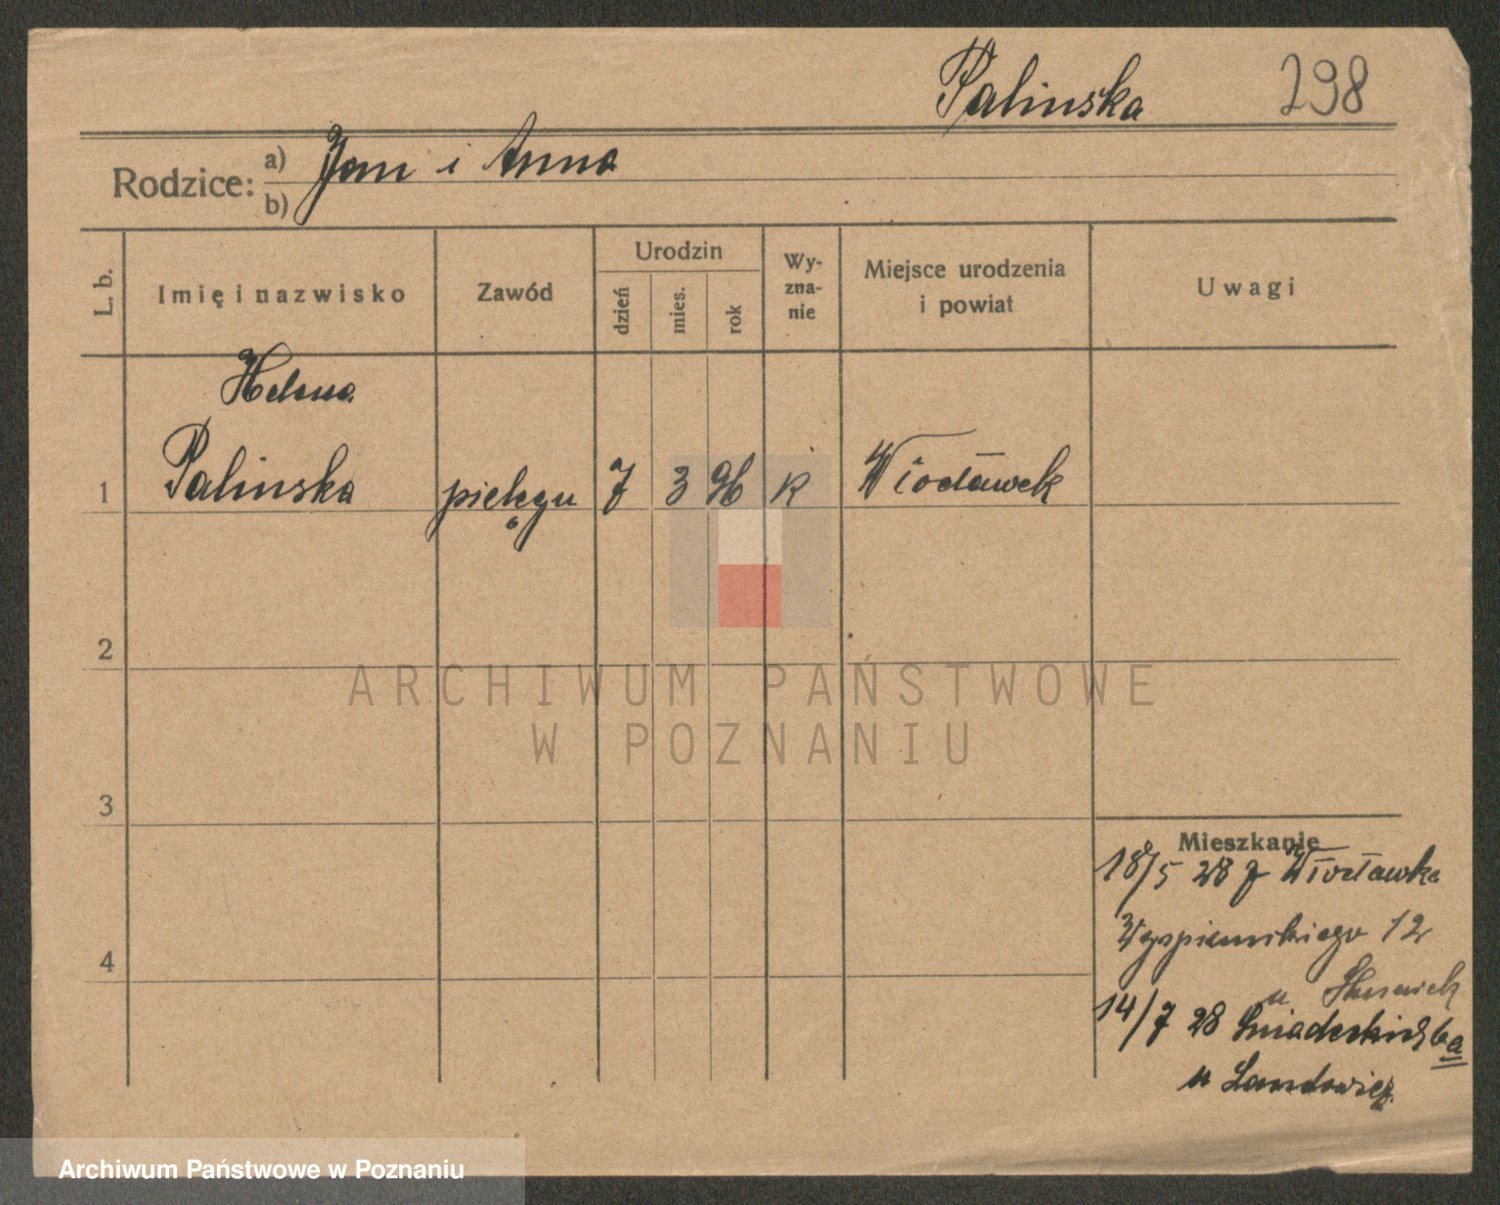 Palinska 298
Rodzice: a) Jan i Anna
b)
L. b. Imię i nazwisko Zawód Urodzin dzień mies. rok Wy-zna-nie Miejsce urodzenia i powiat Uwagi
Helena
1 Palinska pielęgn 7 3 k Włocławek
2
3
4
Mieszkanie
18/5 28 z Włocławka
Wyspianskiego 12
u
14/7 28 Sniadeckich 6a
u Landowicz
ARCHIWUM PAŃSTWOWE
W POZNANIU
Archiwum Państwowe w Poznaniu